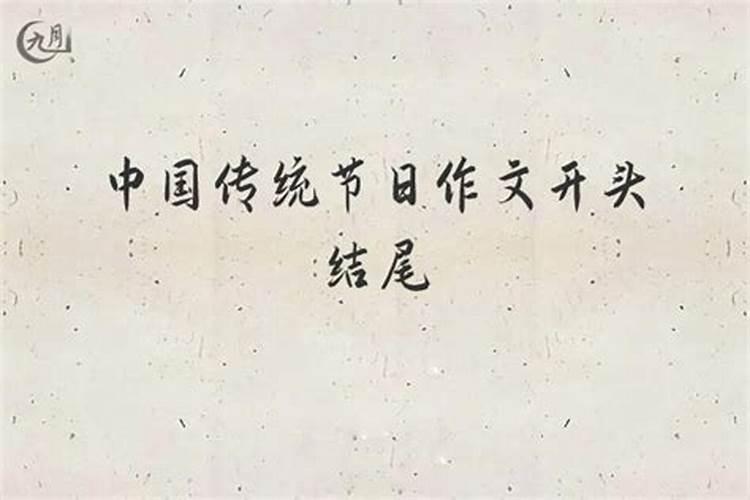 九月
中国传统节日作文开头
结尾